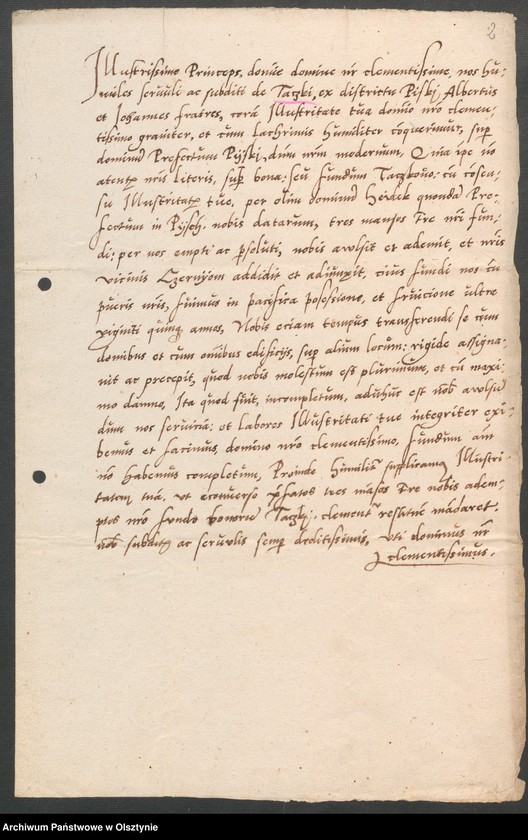 2
Illustrissime Princeps, domine domine nr clementissime, nos hu-
miles servuli ac subditi de Taczki, ex districtu Piskj Albertus
et Johannes fratres, corā Illustritate tua domīo nrō clemen-
tissimo graviter, et cum lachrimis humiliter coquerimur, sup
dominū Prefectum Pyskj, dūm nrūm modernum, Quia ipe nō
attentis nris literis, sup bona: seu fundum Taczkowo: cū cosen-
su Illustritatis tue, per olim dominū Heidek quondā Pre-
fectum in Pysch. nobis datarum, tres mansos Tre nri fun-
di: per nos empti ac psoluti, nobis avulsit et ademit, et nris
vicinis Czernyom addidit et adiunxit, cuius fundi nos cū
pueris nris, fuimus in pacifica posessione, et fruicione ultra
viginti quinq annos, Nobis eciam tempus transferendi se cum
domibus et cum omibus edificijs, sup alium locum: rigide assigna-
vit ac precepit, quod nobis molestum est plurimum, et cū maxi-
mo damno, Ita quod sit, incompletum, adhuc est nob avulsū
dum nos servicia: et labores Illustritati tue integriter exi-
bemus et facimus, domino nrō clementissimo, fundum aūt
nō habemus completum, Proinde humiliter supplicamus Illustri-
tatem tuā, ut econverso pfatos tres māsos Tre nobis adem-
ptos nrō fundo bonorū Taczkj. clementer restitui mādaret.
nob subditis ac servulis semp deditissimis, uti dominus nr
clementissimus.
Archiwum Państwowe w Olsztynie